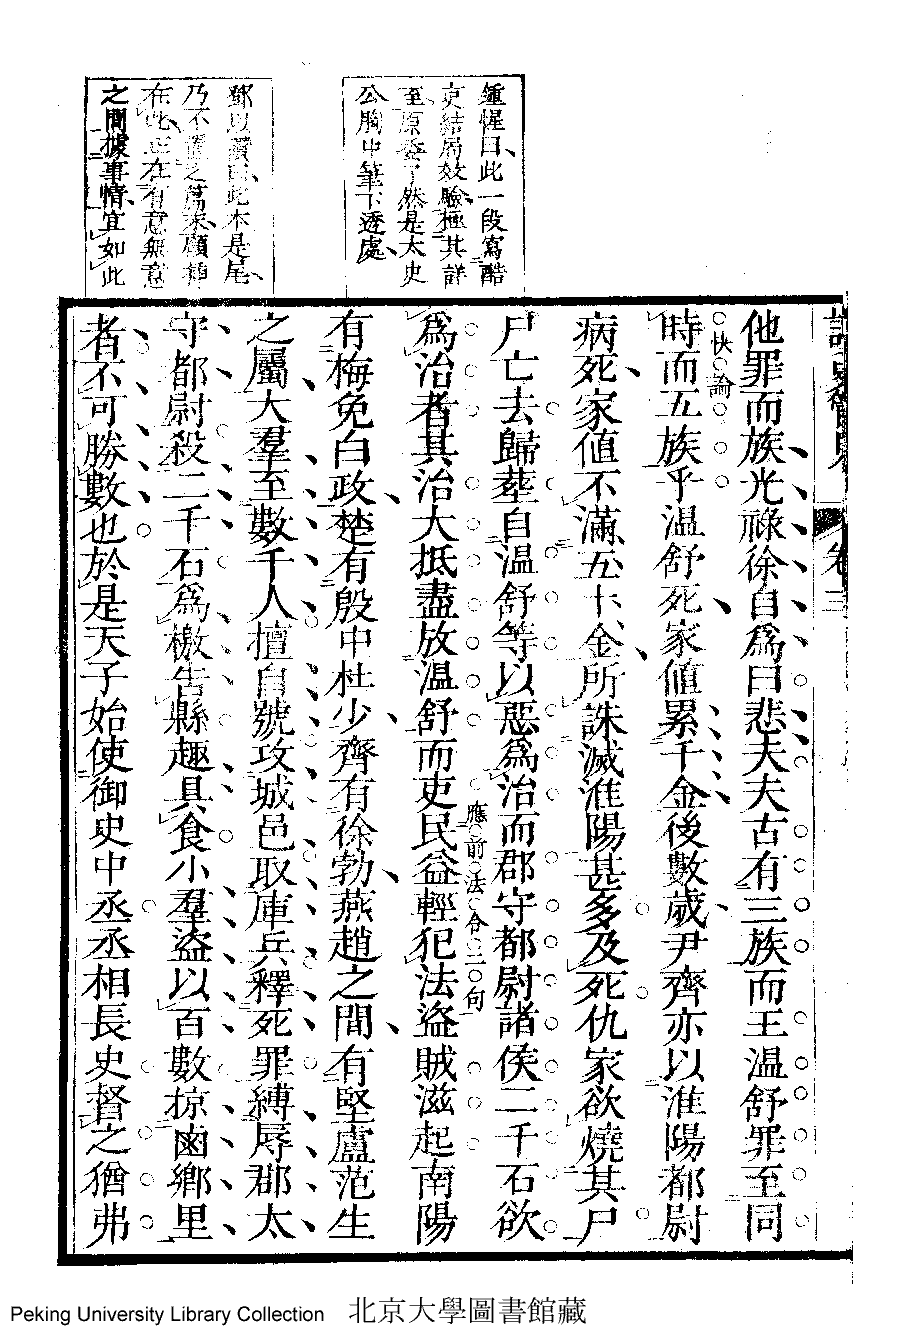 鍾惺曰此一段寫酷
吏結局效驗極其詳
至原委了然是太史
公胸中筆下透處
鄧以讚曰此本是尾
乃不置之篇末顧插
在此正在有意無意
之間據事情宜如此
卷三
他罪而族光祿徐自爲曰悲夫夫古有三族而王温舒罪至同
快論
時而五族乎温舒死家值累千金後數歲尹齊亦以淮陽都尉
病死家值不滿五十金所誅滅淮陽甚多及死仇家欲燒其尸
尸亡去歸葬自温舒等以惡爲治而郡守都尉諸侯二千石欲
應前法令二句
爲治者其治大抵盡放温舒而吏民益輕犯法盜賊滋起南陽
有梅免白政楚有殷中杜少齊有徐勃燕趙之間有堅盧范生
之屬大羣至數千人擅自號攻城邑取庫兵釋死罪縛辱郡太
守都尉殺二千石爲檄告縣趣具食小羣盜以百數掠鹵鄉里
者不可勝數也於是天子始使御史中丞丞相長史督之猶弗
Peking University Library Collection 北京大學圖書館藏